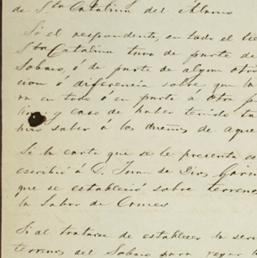 de Sta Catalina del Alamo
Si el respondente, en todo el tie
Sta Catalina tuvo de parte de
Sobaco, ó de parte de algun otro
cion ó diferencia sobre que la
ra en todo ó en parte á otra p
y caso de haber tenido ta
saber á los dueños de aque
Si la carta que se le presenta es
escribió á D. Juan de Dios
que se estableció sobre terreno
la Labor de
Si al tratarse de establecer la
terrenos del Sobaco para regar l